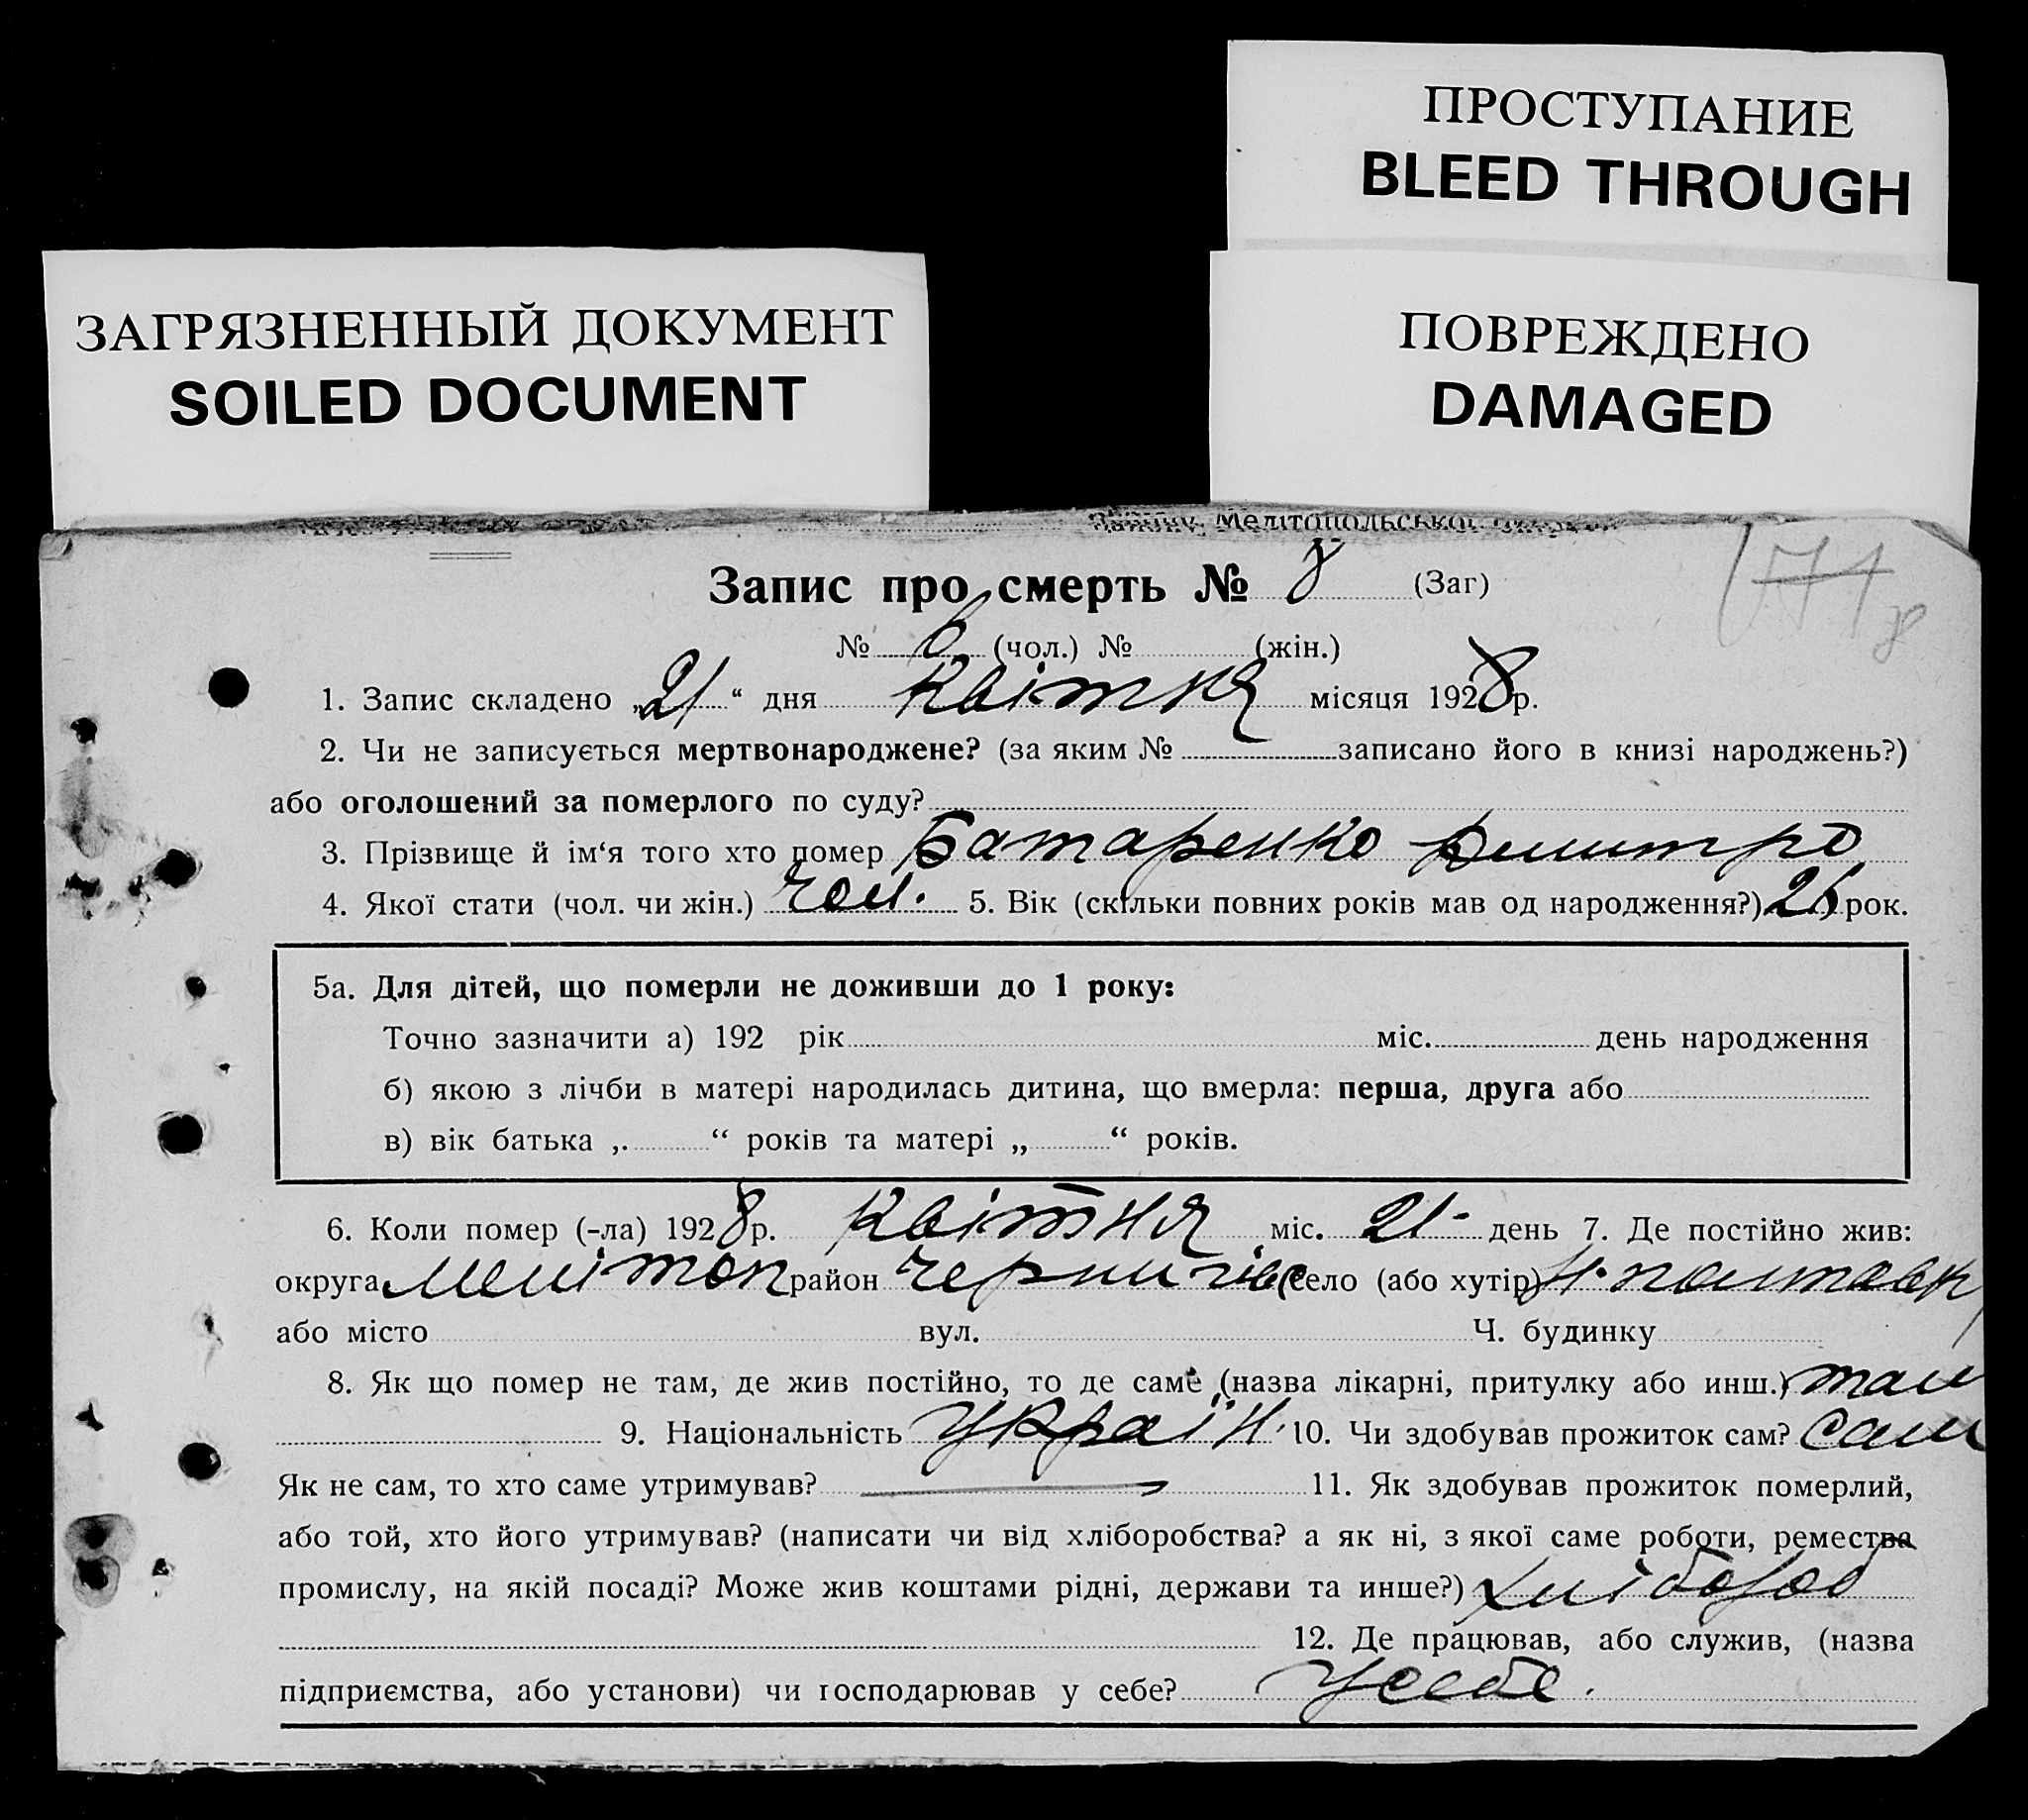 ПРОСТУПАНИЕ
BLEED THROUGH
ЗАГРЯЗНЕННЫЙ ДОКУМЕНТ
SOILED DOCUMENT
ПОВРЕЖДЕНО
DAMAGED
Мелітопольської
Запис про смерть № 8 (Заг)
№ 6 (чол.) № (жін.)
1. Запис складено „21“ дня квітня місяця 1928 р.
2. Чи не записується мертвонароджене? (за яким № записано його в книзі народжень?)
або оголошений за померлого по суду?
3. Прізвище й ім‘я того хто помер Батаренко Дмитро
4. Якої стати (чол. чи жін.) чол. 5. Вік (скільки повних років мав од народження?) рок.
5а. Для дітей, що померли не доживши до 1 року:
Точно зазначити а) 192 рік міс. день народження
б) якою з лічби в матері народилась дитина, що вмерла: перша, друга або
в) вік батька „ “ років та матері „ “ років.
6. Коли помер (-ла) 1928 р. квітня міс. 21 день 7. Де постійно жив:
округа Мелітоп район Чернигів село (або хутір) Н. Полтавк
або місто вул. Ч. будинку
8. Як що помер не там, де жив постійно, то де саме (назва лікарні, притулку або инш.) там
9. Національність Україн. 10. Чи здобував прожиток сам? Сам
Як не сам, то хто саме утримував? 11. Як здобував прожиток померлий,
або той, хто його утримував? (написати чи від хліборобства? а як ні, з якої саме роботи, ремества
промислу, на якій посаді? Може жив коштами рідні, держави та инше?) Хлібороб
12. Де працював, або служив, (назва
підприємства, або установи) чи господарював у себе? У себе.